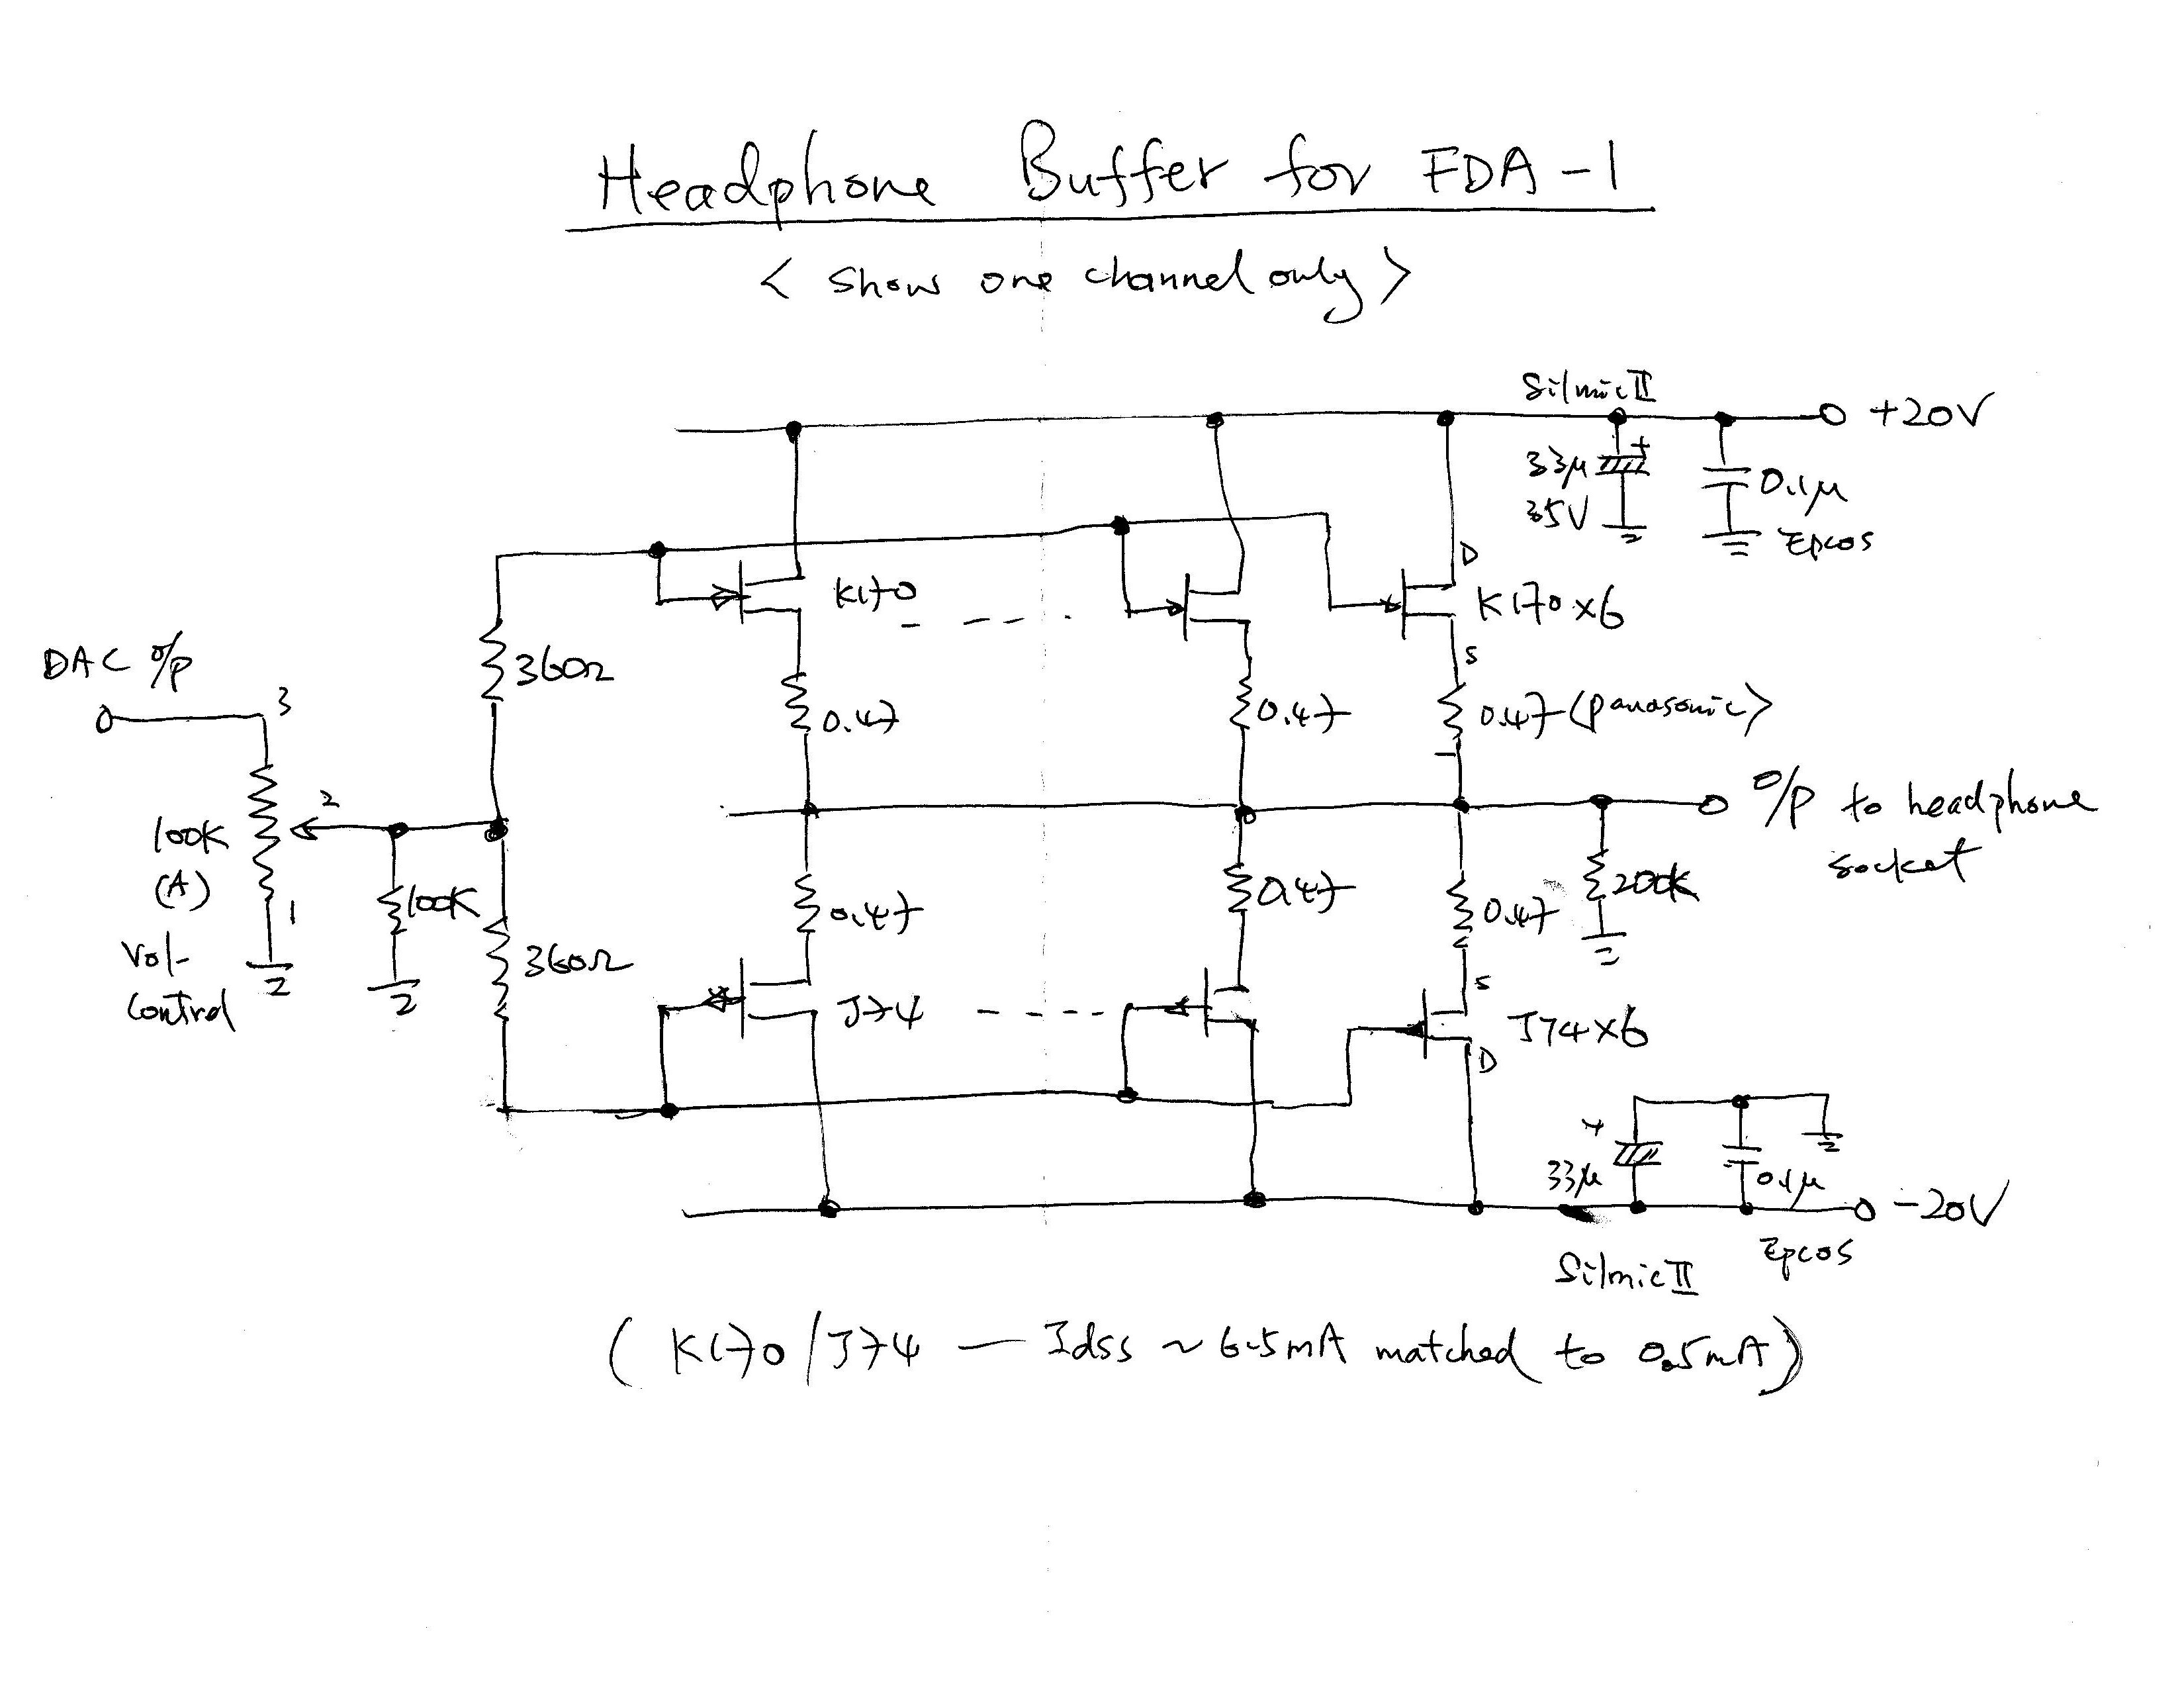 Headphone Buffer for FDA-1
< Show one channel only >
Silmic II
+20V
33µ
+
35V
0.1µ
Epcos
D
K170
K170 x6
S
DAC o/p
3
360Ω
0.47
0.47
0.47 (panasonic)
2
100K
(A)
Vol-
Control
1
100K
o/p to headphone
socket
360Ω
0.47
0.47
0.47
200K
S
J74
J74 x6
D
+
33µ
0.1µ
-20V
Epcos
Silmic II
( K170 / J74 — Idss ~ 6.5mA matched to 0.5mA )